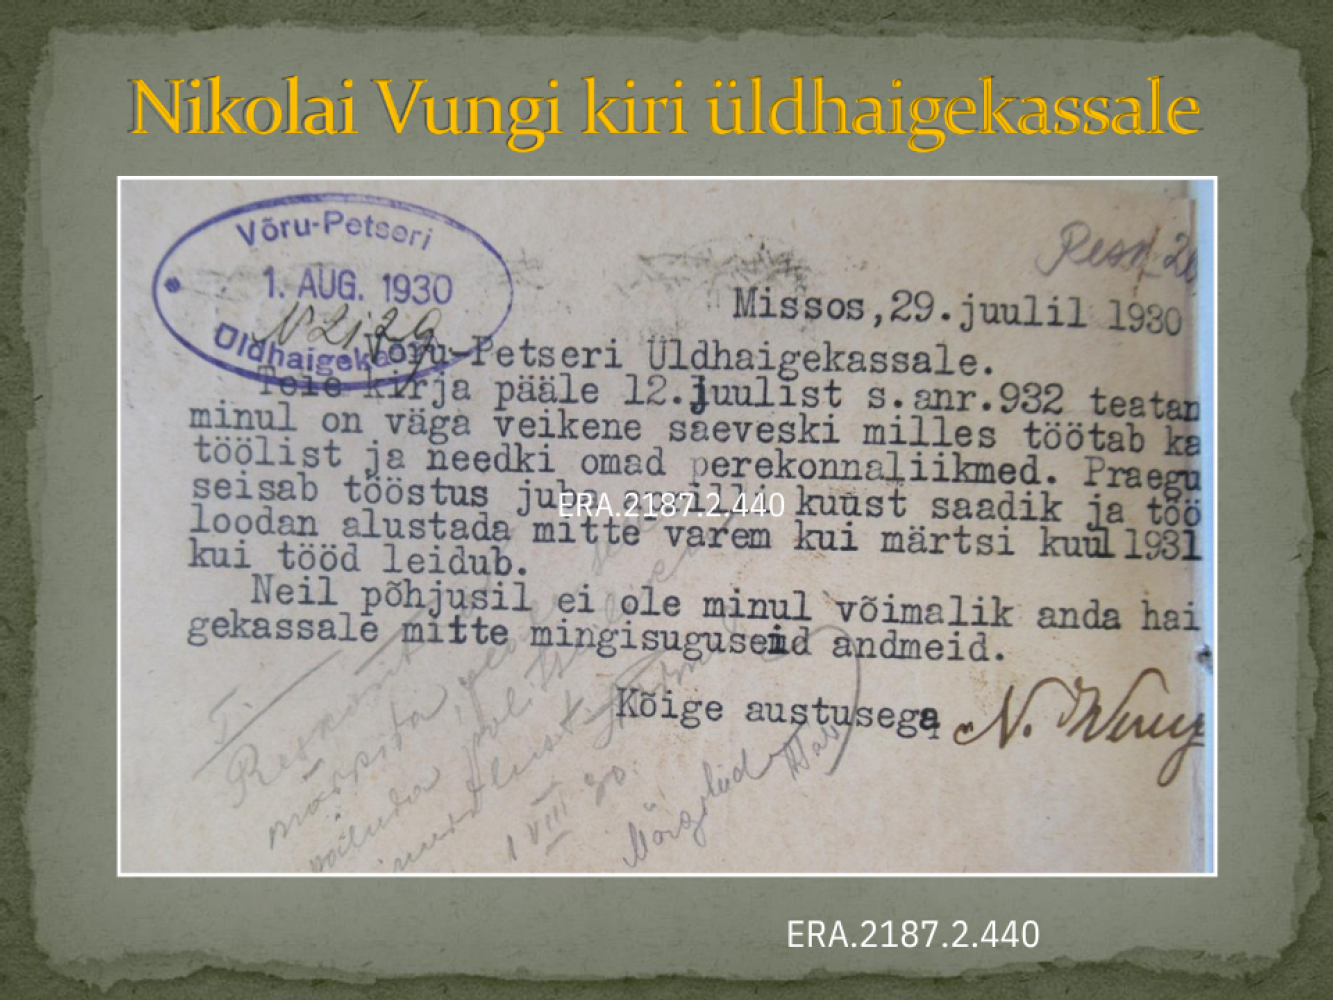 Nikolai Vungi kiri üldhaigekassale
Võru-Petseri
1. AUG. 1930
Üldhaigekassa
Missos,29.juulil 1930
Võru-Petseri Üldhaigekassale.
Teie kirja pääle 12.juulist s.anr.932 teatan
minul on väga veikene saeveski milles töötab ka
töölist ja needki omad perekonnaliikmed. Praegu
seisab tööstus juba kuust saadik ja töö
ERA.2187.2.440
loodan alustada mitte varem kui märtsi kuul 1931
kui tööd leidub.
Neil põhjusil ei ole minul võimalik anda hai
gekassale mitte mingisuguseid andmeid.
Kõige austusega
N.
1 VIII 30
ERA.2187.2.440